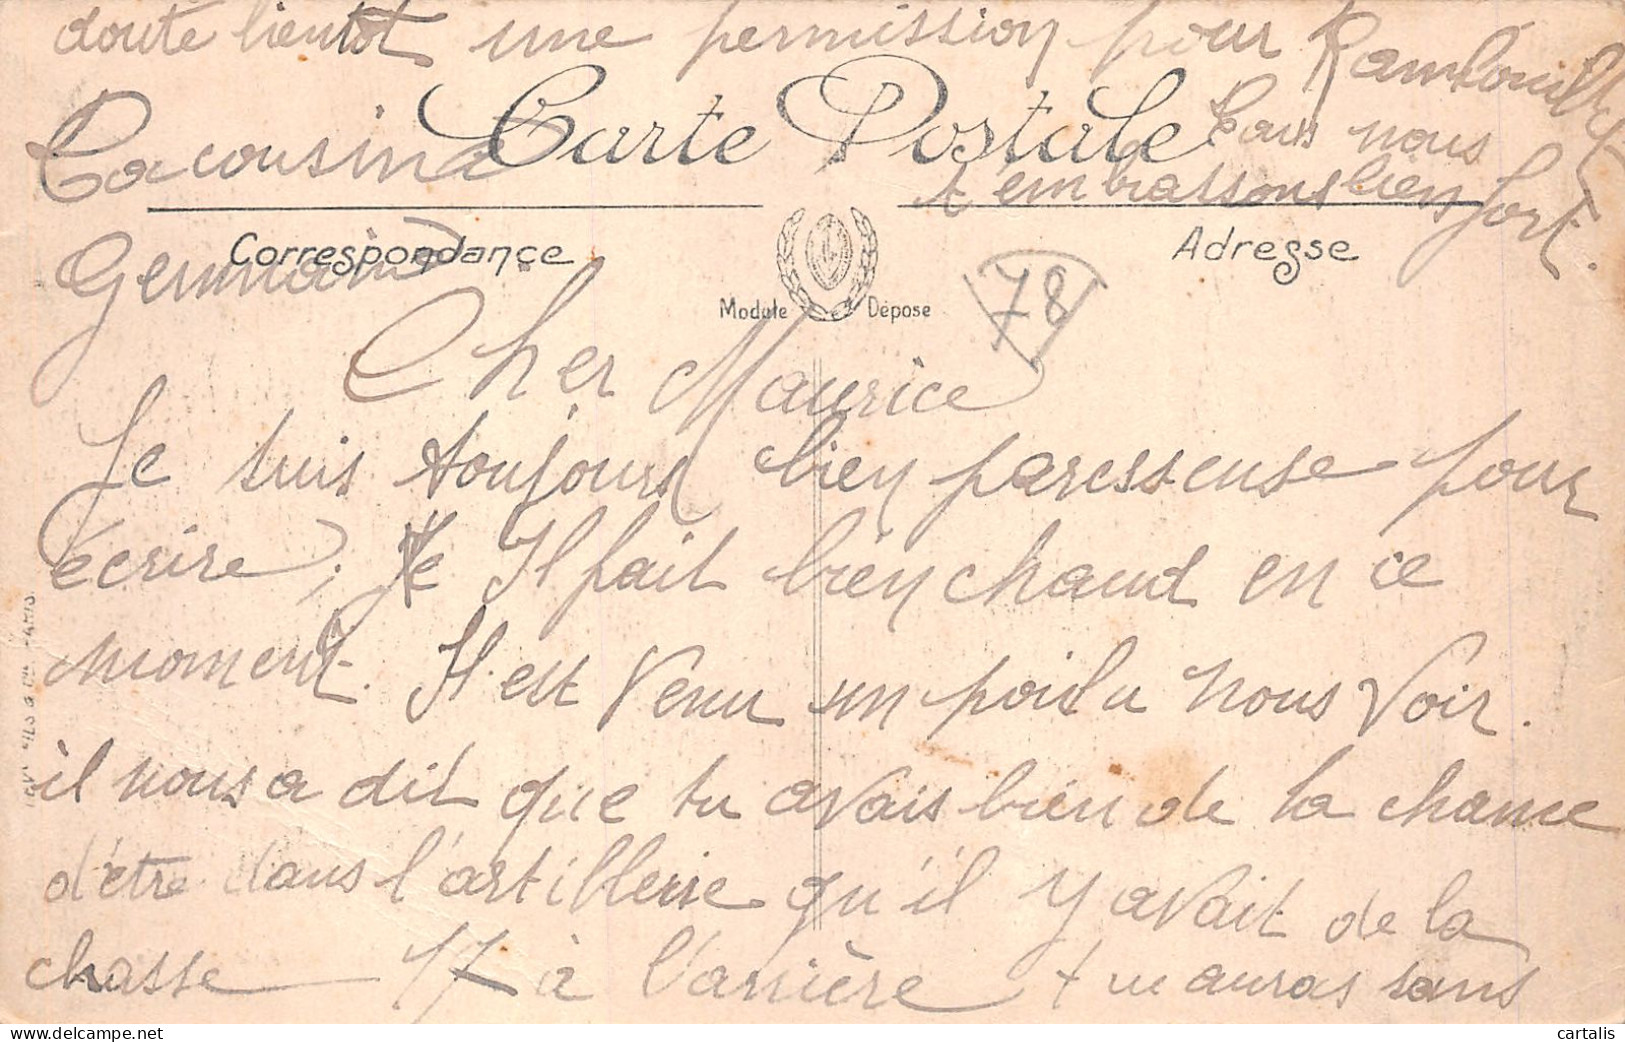 doute bientôt une permission pour Rambouillet
Carte Postale
Tous nous
t'embrassons bien fort.
Ta cousine
Germaine
Correspondance
Adresse
Modèle Déposé
78
Cher Maurice
Je suis toujours bien paresseuse pour
écrire; Je Il fait bien chaud en ce
moment. Il est venu un poilu nous voir.
il nous a dit que tu avais bien de la chance
d'être dans l'artillerie qu'il y avait de la
chasse 17 à l'arrière tu auras sans
PARIS.
cartalis